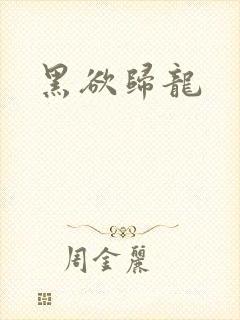 黑欲歸龍
周金麗